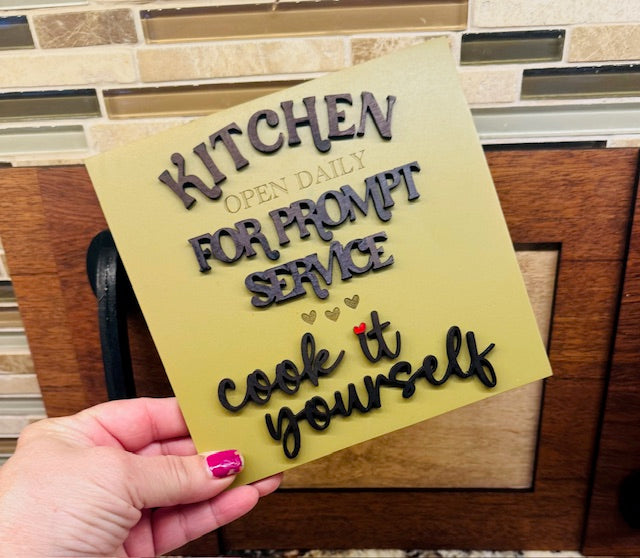 KITCHEN
OPEN DAILY
FOR PROMPT
SERVICE
cook it
yourself